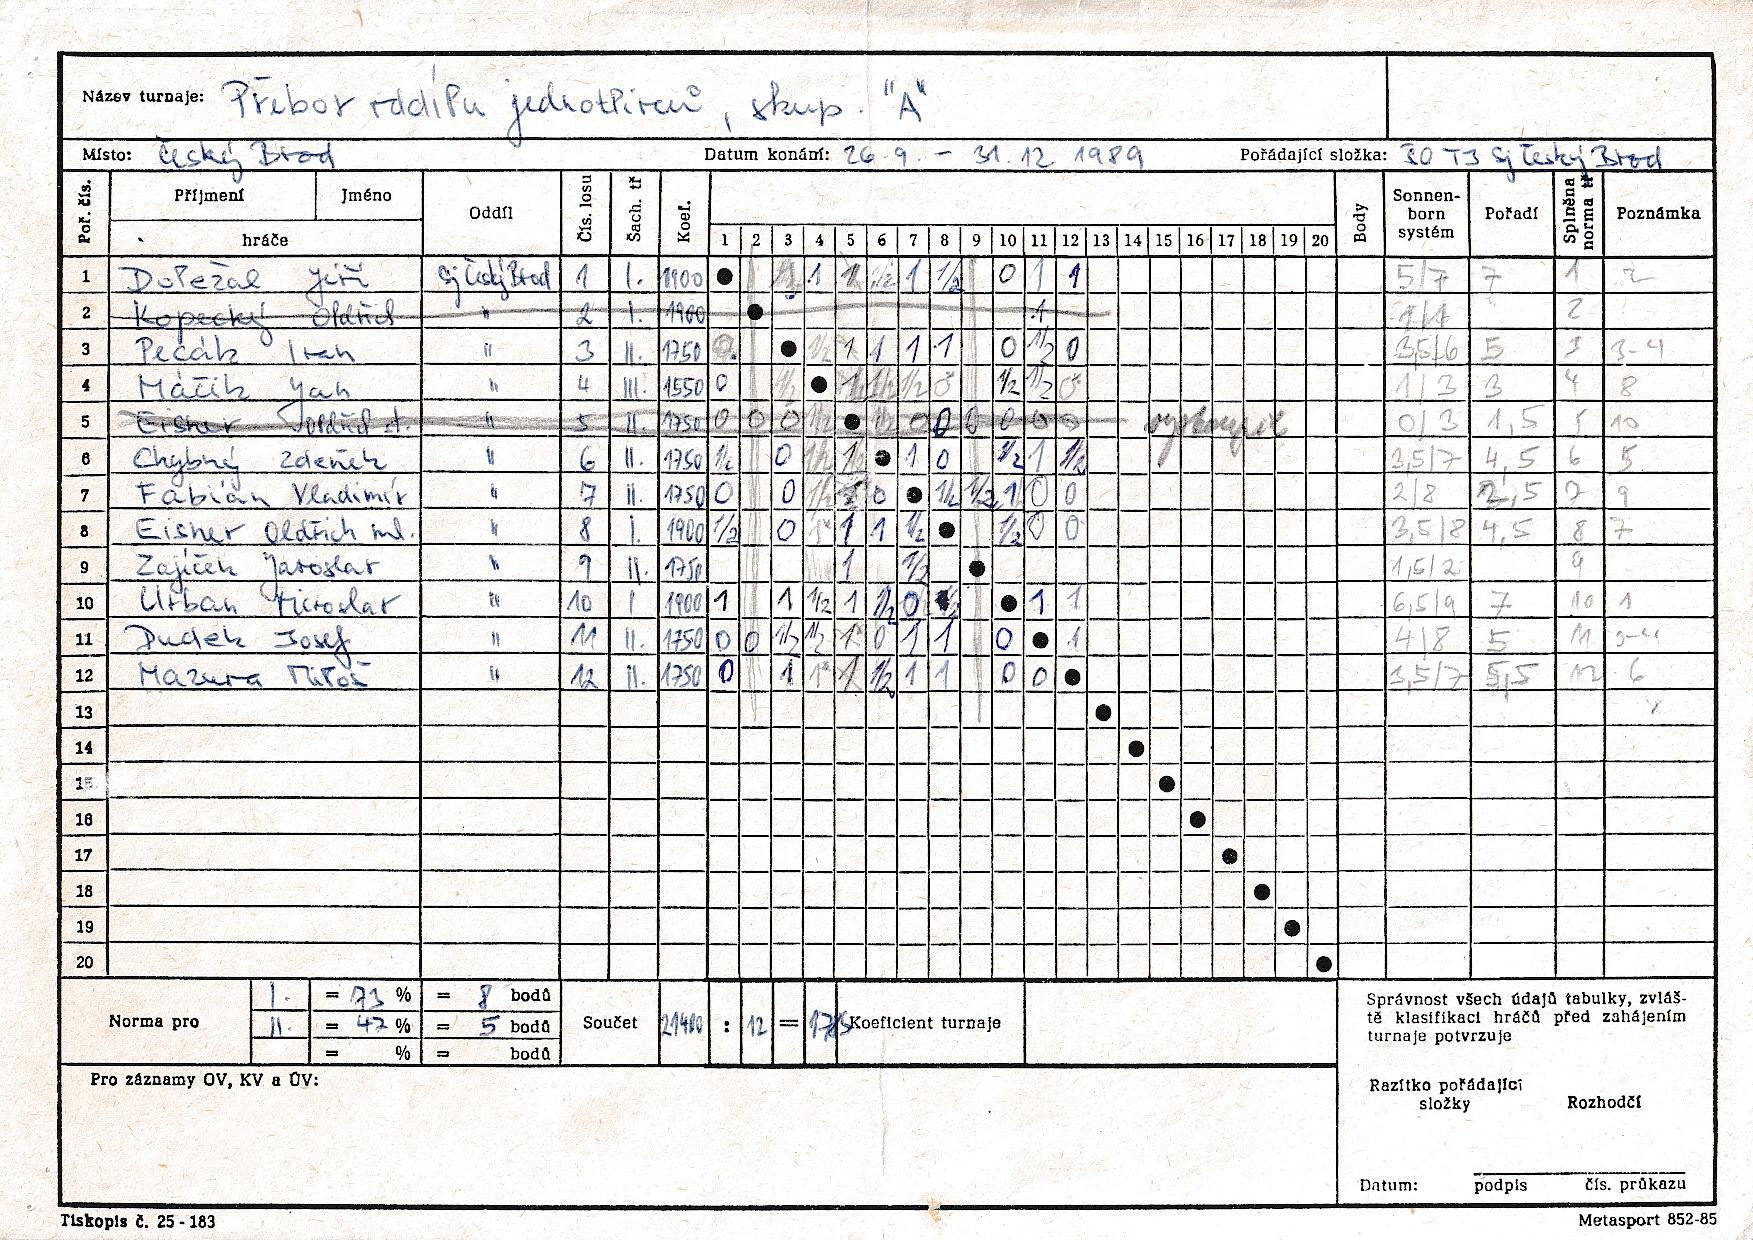 Název turnaje: Přebor oddílu jednotlivců, skup. "A"
Místo: Český Brod Datum konání: 26.9. - 31.12 1989 Pořádající složka: ŠO TJ Sj Český Brod
Poř. čís. Příjmení Jméno hráče Oddíl Čís. losu Šach. tř Koef. 1 2 3 4 5 6 7 8 9 10 11 12 13 14 15 16 17 18 19 20 Body Sonnen-born systém Pořadí Splněna norma tř Poznámka
1 Doležal Jiří Sj Český Brod 1 I. 1900 ● 1 1 1/2 1 1/2 0 1 1 5/7 7 1 2
2 Kopecký Oldřich " 2 I. 1900 ● 1 1/1 2
3 Pečák Ivan " 3 II. 1750 ● 1/2 1 1 1 1 0 1/2 0 3,5/6 5 3 3-4
4 Máčik Jan " 4 III. 1550 0 1/2 ● 1 1/2 1/2 0 1/2 1/2 0 1/3 3 4 8
5 Eisner Oldřich st. " 5 II. 1750 0 0 0 1/2 ● 1/2 0 0 0 0 0 0 vystoupil 0/3 1,5 5 10
6 Chybný Zdeněk " 6 II. 1750 1/2 0 1/2 1/2 ● 1 0 1/2 1 1/2 3,5/7 4,5 6 5
7 Fabián Vladimír " 7 II. 1750 0 0 1/2 1 0 ● 1/2 1/2 1 0 0 2/8 2,5 7 9
8 Eisner Oldřich ml. " 8 I. 1900 1/2 0 1 1 1 1/2 ● 1/2 0 0 3,5/8 4,5 8 7
9 Zajíček Jaroslav " 9 II. 1750 1 1/2 ● 1,5/2 9
10 Urban Miroslav " 10 I 1900 1 1 1/2 1 1/2 0 1/2 ● 1 1 6,5/9 7 10 1
11 Dudek Josef " 11 II. 1750 0 0 1/2 1/2 1 0 1 1 0 ● 1 4/8 5 11 3-4
12 Mazura Miloš " 12 II. 1750 0 1 1 1 1/2 1 1 0 0 ● 3,5/7 5,5 12 6
13 ●
14 ●
15 ●
16 ●
17 ●
18 ●
19 ●
20 ●
Norma pro I. = 73 % = 8 bodů
II. = 47 % = 5 bodů
= % = bodů
Součet 21400 : 12 = Koeficient turnaje
Správnost všech údajů tabulky, zvláš-
tě klasifikaci hráčů před zahájením
turnaje potvrzuje
Pro záznamy OV, KV a ÚV:
Razítko pořádající
složky Rozhodčí
Datum: podpis čís. průkazu
Tiskopis č. 25 - 183 Metasport 852-85